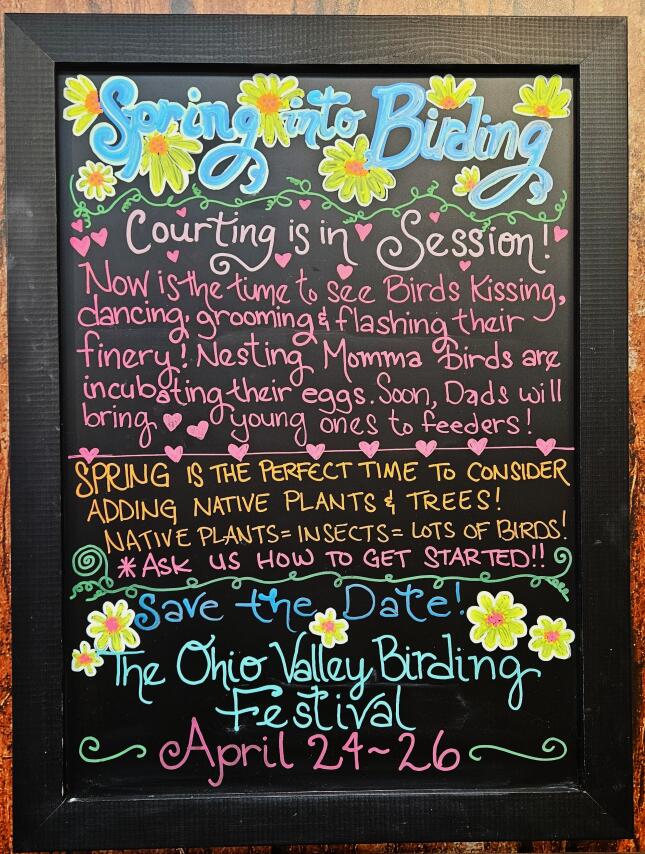 Spring into Birding
Courting is in Session!
Now is the time to see Birds Kissing,
dancing, grooming & flashing their
finery! Nesting Momma Birds are
incubating their eggs. Soon, Dads will
bring young ones to feeders!
SPRING IS THE PERFECT TIME TO CONSIDER
ADDING NATIVE PLANTS & TREES!
NATIVE PLANTS = INSECTS = LOTS OF BIRDS!
*ASK US HOW TO GET STARTED!!
Save the Date!
The Ohio Valley Birding
Festival
April 24~26